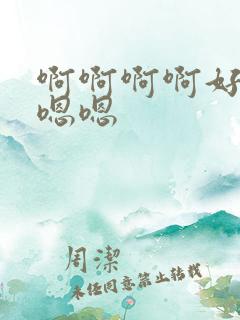 啊啊啊啊好
嗯嗯
周潔
未经同意禁止转载